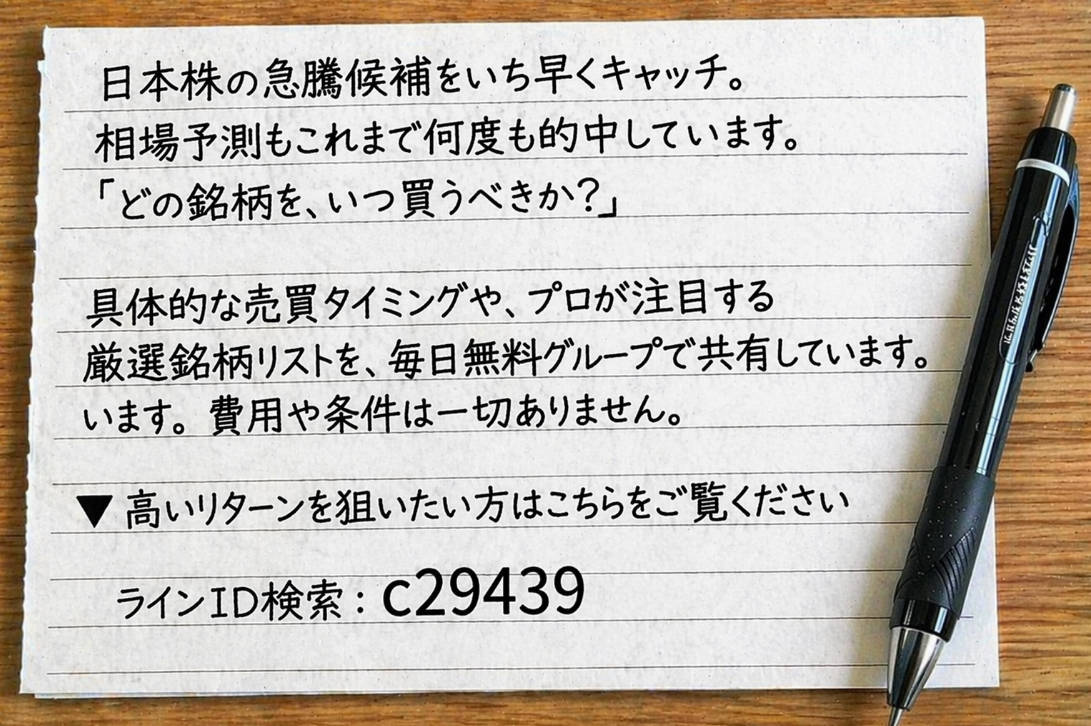 日本株の急騰候補をいち早くキャッチ。
相場予測もこれまで何度も的中しています。
「どの銘柄を、いつ買うべきか?」
具体的な売買タイミングや、プロが注目する
厳選銘柄リストを、毎日無料グループで共有しています。
います。費用や条件は一切ありません。
▼ 高いリターンを狙いたい方はこちらをご覧ください
ラインID検索：c29439